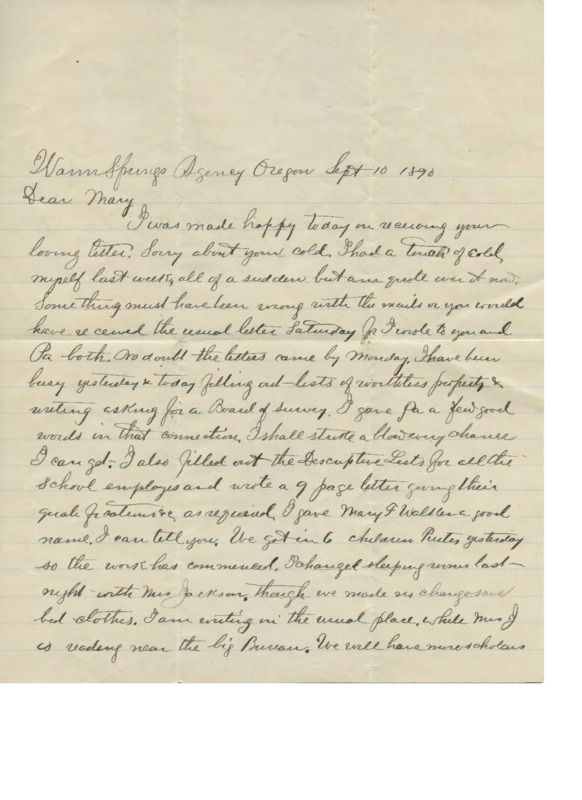 Warm Springs Agency Oregon Sept 10 1890
Dear Mary
I was made happy today on receiving your
loving letter. Sorry about your cold. I had a touch of cold,
myself last week, all of a sudden but am quite over it now.
Something must have been wrong with the mails or you would
have received the usual letter Saturday for I wrote to you and
Pa both. No doubt the letters came by Monday. I have been
busy yesterday & today filling out lists of worthless property &
writing asking for a Board of survey. I gave Pa a few good
words in that connection. I shall strike a blow every chance
I can get. I also filled out the Descriptive Lists for all the
School employes and wrote a 9 page letter giving their
qualifications &c, as required. I gave Mary F Walker a good
name. I can tell you. We got in 6 children Piutes yesterday
so the work has commenced. I changed sleeping rooms last
night with Mrs Jackson, though we made no change save
bed clothes. I am writing in the usual place, while Mrs J
is reading near the big Bureau. We will have more scholars